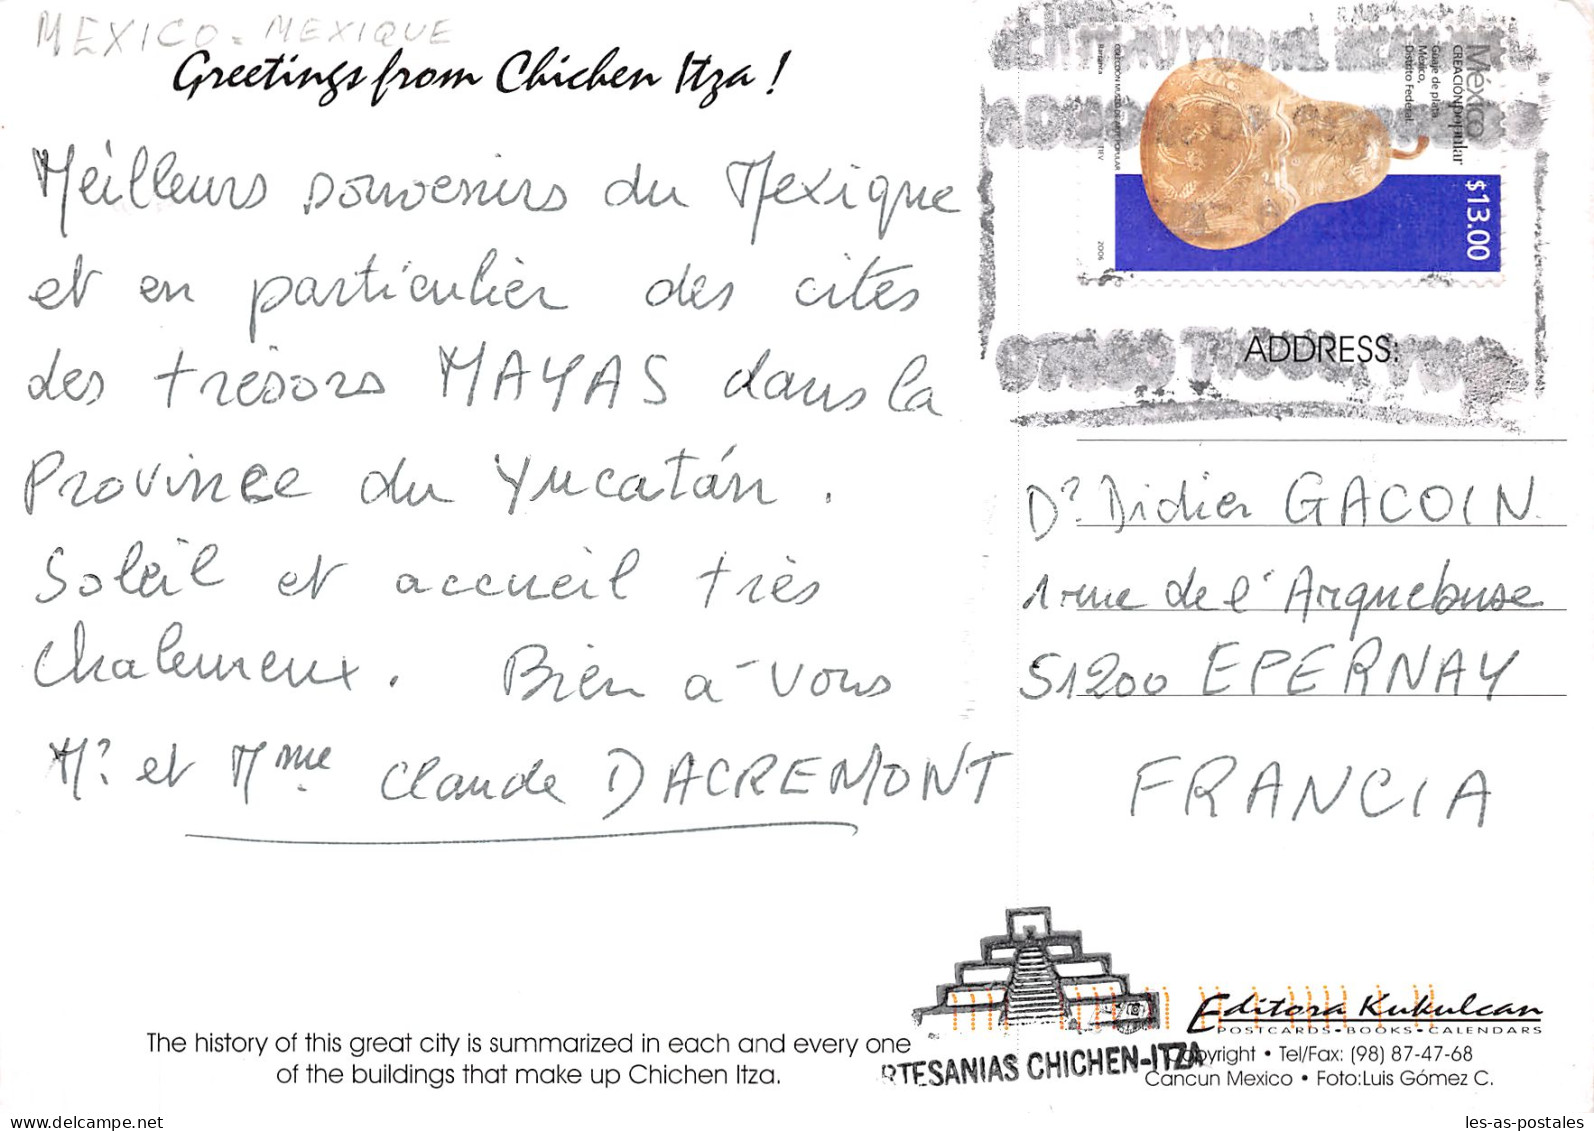 MEXICO - MEXIQUE
Greetings from Chichen Itza !
Meilleurs souvenirs du Mexique
et en particulier des cités
des trésors MAYAS dans la
Province du Yucatán.
Soleil et accueil très
Chaleureux. Bien à vous
Mr. et Mme Claude DACREMONT
México
CREACIÓN popular
Guaje de plata
México,
Distrito Federal.
$13.00
2006
ADDRESS:
Dr. Didier GACOIN
1 rue de l'Arquebuse
51200 EPERNAY
FRANCIA
The history of this great city is summarized in each and every one
of the buildings that make up Chichen Itza.
RTESANIAS CHICHEN-ITZA
Editora Kukulcan
POSTCARDS-BOOKS-CALENDARS
Copyright • Tel/Fax: (98) 87-47-68
Cancun Mexico • Foto:Luis Gómez C.
www.delcampe.net
les-as-postales